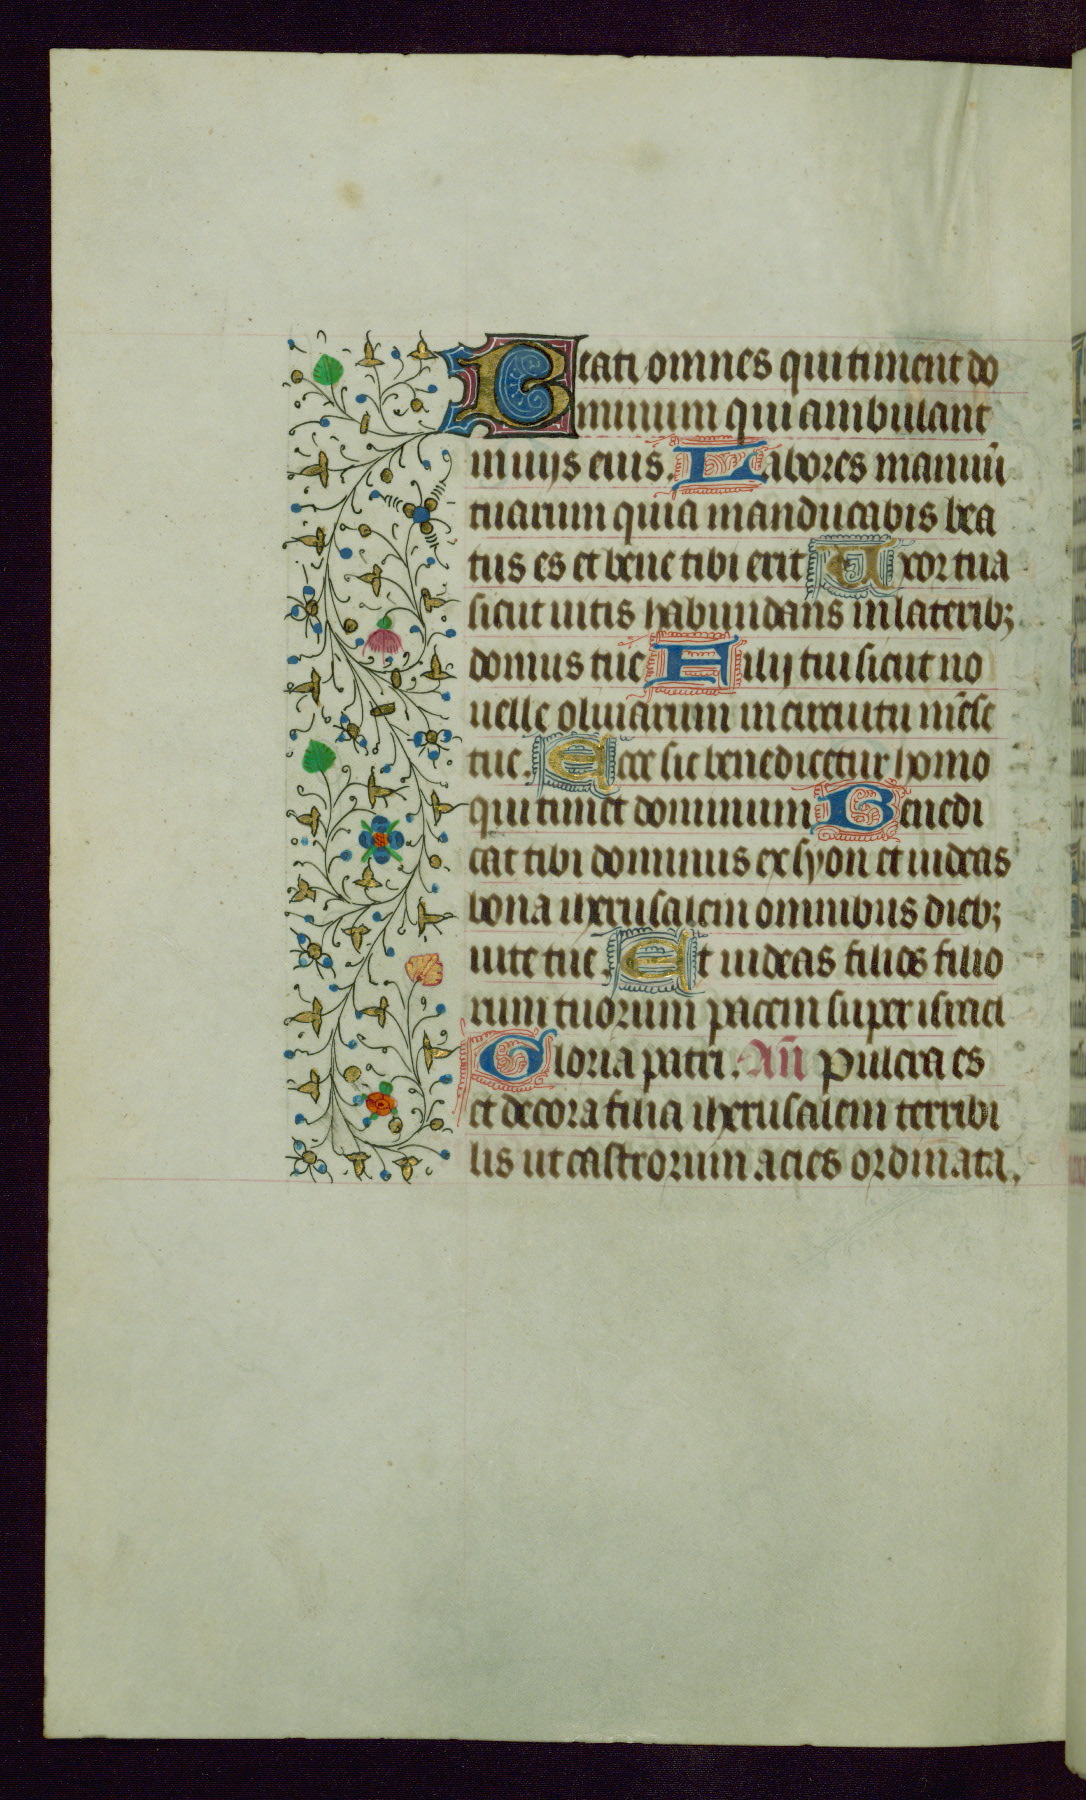 Beati omnes qui timent do
minum qui ambulant
in uijs eius. Labores manuū
tuarum quia manducabis bea
tus es et bene tibi erit Uxor tua
sicut uitis habundans in laterib;
domus tue Filij tui sicut no
uelle oliuarum in circuitu mēse
tue. Ecce sic benedicetur homo
qui timet dominum Benedi
cat tibi dominus ex syon et uideas
bona iherusalem omnibus dieb;
uite tue. Et uideas filios filio
rum tuorum pacem super israel
Gloria patri. Añ Pulcra es
et decora filia iherusalem terribi
lis ut castrorum acies ordinata.